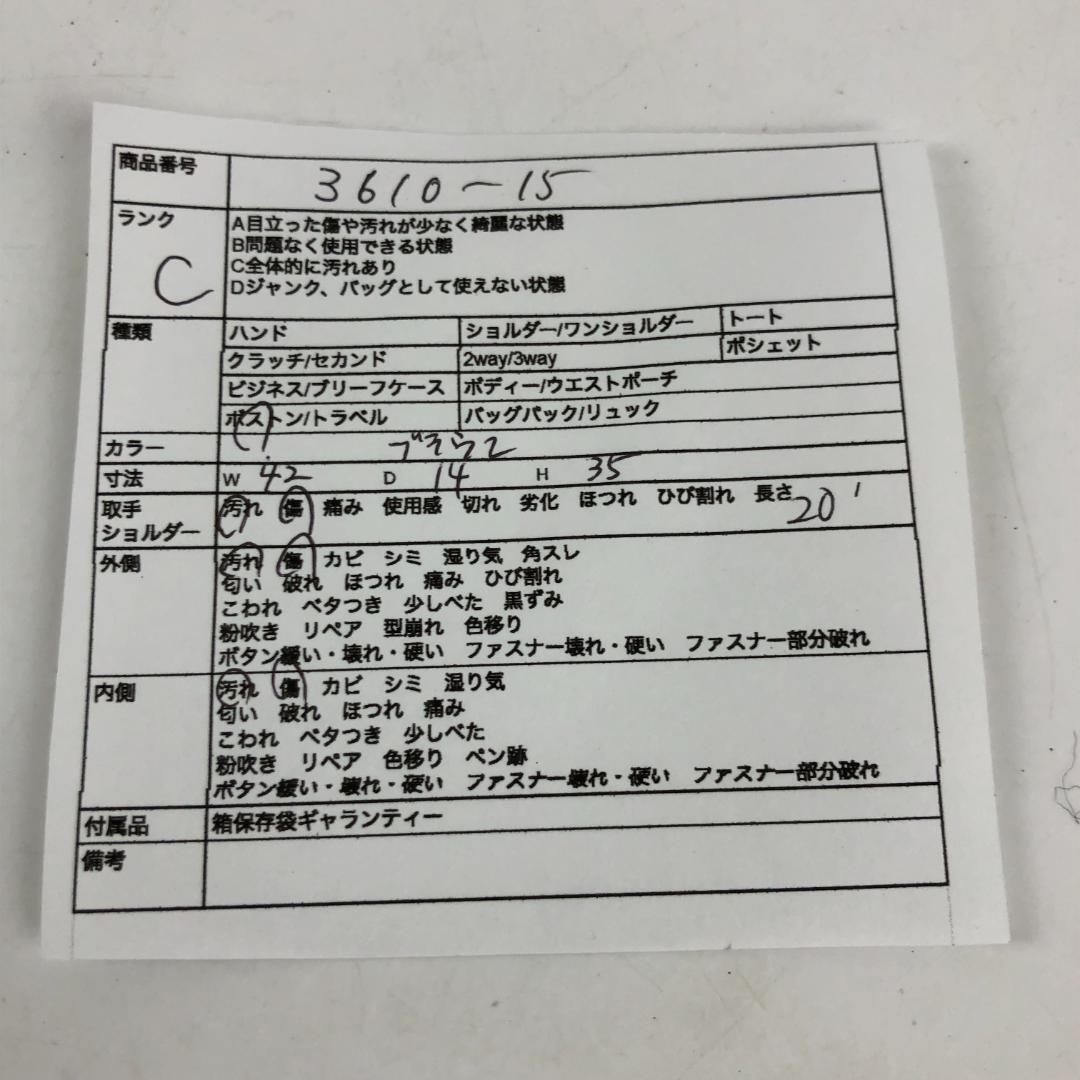 商品番号 3610-15
ランク C
A目立った傷や汚れが少なく綺麗な状態
B問題なく使用できる状態
C全体的に汚れあり
Dジャンク、バッグとして使えない状態
種類 ハンド ショルダー/ワンショルダー トート
クラッチ/セカンド 2way/3way ポシェット
ビジネス/ブリーフケース ボディー/ウエストポーチ
ボストン/トラベル バッグパック/リュック
カラー ブラウン
寸法 W 42 D 14 H 35
取手 汚れ 傷 痛み 使用感 切れ 劣化 ほつれ ひび割れ 長さ 20
ショルダー
外側 汚れ 傷 カビ シミ 湿り気 角スレ
匂い 破れ ほつれ 痛み ひび割れ
こわれ ベタつき 少しべた 黒ずみ
粉吹き リペア 型崩れ 色移り
ボタン緩い・壊れ・硬い ファスナー壊れ・硬い ファスナー部分破れ
内側 汚れ 傷 カビ シミ 湿り気
匂い 破れ ほつれ 痛み
こわれ ベタつき 少しべた
粉吹き リペア 色移り ペン跡
ボタン緩い・壊れ・硬い ファスナー壊れ・硬い ファスナー部分破れ
付属品 箱保存袋ギャランティー
備考